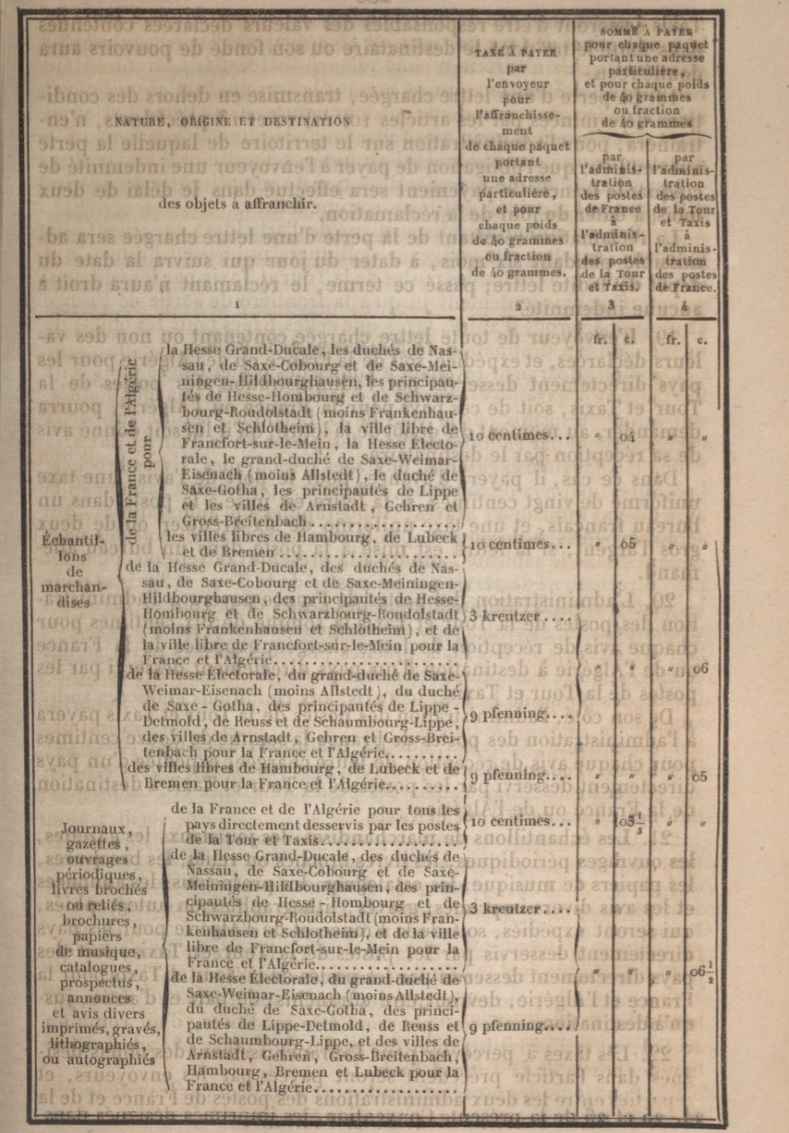 NATURE, ORIGINE ET DESTINATION
des objets a affranchir.
1
TAXE À PAYER
par
l'envoyeur
pour
l'affranchisse-
ment
de chaque paquet
portant
une adresse
particulière,
et pour
chaque poids
de 40 grammes
ou fraction
de 40 grammes.
2
SOMME A PAYER
pour chaque paquet
portant une adresse
particulière,
et pour chaque poids
de 40 grammes
ou fraction
de 40 grammes
par
l'adminis-
tration
des postes
de France
à
l'adminis-
tration
des postes
de la Tour
et Taxis.
3
par
l'adminis-
tration
des postes
de la Tour
et Taxis
à
l'adminis-
tration
des postes
de France.
4
fr. c. fr. c.
Échantil-
lons
de
marchan-
dises
de la France et de l'Algérie
pour
la Hesse Grand-Ducale, les duchés de Nas-
sau, de Saxe-Cobourg et de Saxe-Mei-
ningen-Hildbourghausen, les principau-
tés de Hesse-Hombourg et de Schwarz-
bourg-Roudolstadt (moins Frankenhau-
sen et Schlotheim), la ville libre de
Francfort-sur-le-Mein, la Hesse Électo-
rale, le grand-duché de Saxe-Weimar-
Eisenach (moins Allstedt), le duché de
Saxe-Gotha, les principautés de Lippe
et les villes de Arnstadt, Gehren et
Gross-Breitenbach..................
10 centimes... " 04 " "
les villes libres de Hambourg, de Lubeck
et de Bremen ......................
10 centimes... " 05 " "
de la Hesse Grand-Ducale, des duchés de Nas-
sau, de Saxe-Cobourg et de Saxe-Meiningen-
Hildbourghausen, des principautés de Hesse-
Hombourg et de Schwarzbourg-Roudolstadt
(moins Frankenhausen et Schlotheim), et de
la ville libre de Francfort-sur-le-Mein pour la
France et l'Algérie.......................
3 kreutzer....
de la Hesse Électorale, du grand-duché de Saxe-
Weimar-Eisenach (moins Allstedt), du duché
de Saxe-Gotha, des principautés de Lippe-
Detmold, de Reuss et de Schaumbourg-Lippe,
des villes de Arnstadt, Gehren et Gross-Brei-
tenbach pour la France et l'Algérie..........
9 pfenning....
" " " 06
des villes libres de Hambourg, de Lubeck et de
Bremen pour la France et l'Algérie..........
9 pfenning.... " " " 05
Journaux,
gazettes,
ouvrages
périodiques,
livres brochés
ou reliés,
brochures,
papiers
de musique,
catalogues,
prospectus,
annonces
et avis divers
imprimés, gravés,
lithographiés,
ou autographiés
de la France et de l'Algérie pour tous les
pays directement desservis par les postes
de la Tour et Taxis...................
10 centimes... " 03 1/3 " "
de la Hesse Grand-Ducale, des duchés de
Nassau, de Saxe-Cobourg et de Saxe-
Meiningen-Hildbourghausen, des prin-
cipautés de Hesse-Hombourg et de
Schwarzbourg-Roudolstadt (moins Fran-
kenhausen et Schlotheim), et de la ville
libre de Francfort-sur-le-Mein pour la
France et l'Algérie...................
3 kreutzer....
de la Hesse Électorale, du grand-duché de
Saxe-Weimar-Eisenach (moins Allstedt),
du duché de Saxe-Gotha, des princi-
pautés de Lippe-Detmold, de Reuss et
de Schaumbourg-Lippe, et des villes de
Arnstadt, Gehren, Gross-Breitenbach,
Hambourg, Bremen et Lubeck pour la
France et l'Algérie...................
9 pfenning....
" " " 06 1/2